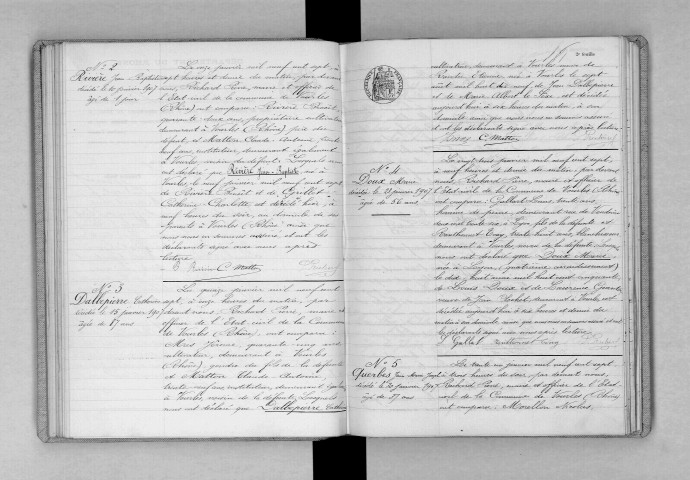 N° 2
Rivière Jean-Baptiste
décédé le 10 janvier 1907
âgé de 1 jour
Le onze janvier mil neuf cent sept à
sept heures et demie du matin, par devant
nous, Richard Pierre, maire et officier de
l'Etat civil de la commune de Vourles
(Rhône) ont comparu: Rivière Benoît
quarante deux ans, propriétaire cultivateur
demeurant à Vourles (Rhône) père du
défunt, & Matton Claude-Antoine, trente
neuf ans, instituteur, demeurant également
à Vourles, voisin du défunt. Lesquels nous
ont déclaré que Rivière Jean-Baptiste né à
Vourles le neuf janvier mil neuf cent sept
de Rivière Benoît et de
Catherine Charlotte est décédé hier, à
neuf heures du soir, au domicile de ses
parents à Vourles (Rhône) ainsi que
nous nous en sommes assuré, et ont les
déclarants signé avec nous après
lecture
B. Rivière C. Matton
N° 3
Dallepierre Catherine
décédée le 15 janvier 1907
âgée de 87 ans
Le quinze janvier mil neuf cent
sept, à onze heures du matin, par
devant nous Richard Pierre, maire et
officier de l'Etat civil de la Commune
de Vourles (Rhône), ont comparu:
Pierre, quarante cinq ans
cultivateur, demeurant à Vourles
(Rhône), gendre de la défunte
et Matton Claude-Antoine
trente neuf ans, instituteur, demeurant également
à Vourles, voisin de la défunte. Lesquels
nous ont déclaré que Dallepierre Catherine
2e feuille
cultivatrice, demeurant à Vourles, veuve de
Etienne, née à Vourles le sept
mil huit cent dix neuf, de Jean Dallepierre
et de Marie est décédée
aujourd'hui à dix heures du matin, à son
domicile ainsi que nous nous en sommes assuré
et ont les déclarants signé avec nous après lecture
C. Matton
N° 4
Doux Marie
décédée le 23 janvier 1907
âgée de 56 ans
Le vingt trois janvier mil neuf cent sept,
à neuf heures et demie du matin, par devant
nous, Richard Pierre, maire et officier de
l'état civil de la Commune de Vourles (Rhône)
ont comparu: Gallat Louis, trente ans,
homme de peine, demeurant rue de Vendôme
à Lyon, fils de la défunte et
trente huit ans, blanchisseur
demeurant à Vourles, voisin de la défunte. Lesquels
nous ont déclaré que Doux Marie
née à Lyon (quatrième arrondissement)
le dix huit mil huit cent cinquante
de Louis Doux et de Laurence
veuve de Jean demeurant à Vourles est
décédée aujourd'hui à dix heures et demie du
matin en son domicile ainsi que nous nous en sommes assuré et ont
les déclarants signé avec nous après lecture
Gallat
N° 5
Querbes Jean Marie Joseph
décédé le 20 janvier 1907
âgé de 87 ans
Le vingt janvier mil neuf cent sept
à trois heures du soir, par devant nous,
Richard Pierre, maire et officier de l'Etat
civil de la Commune de Vourles (Rhône)
ont comparu: Morellon Nicolas,